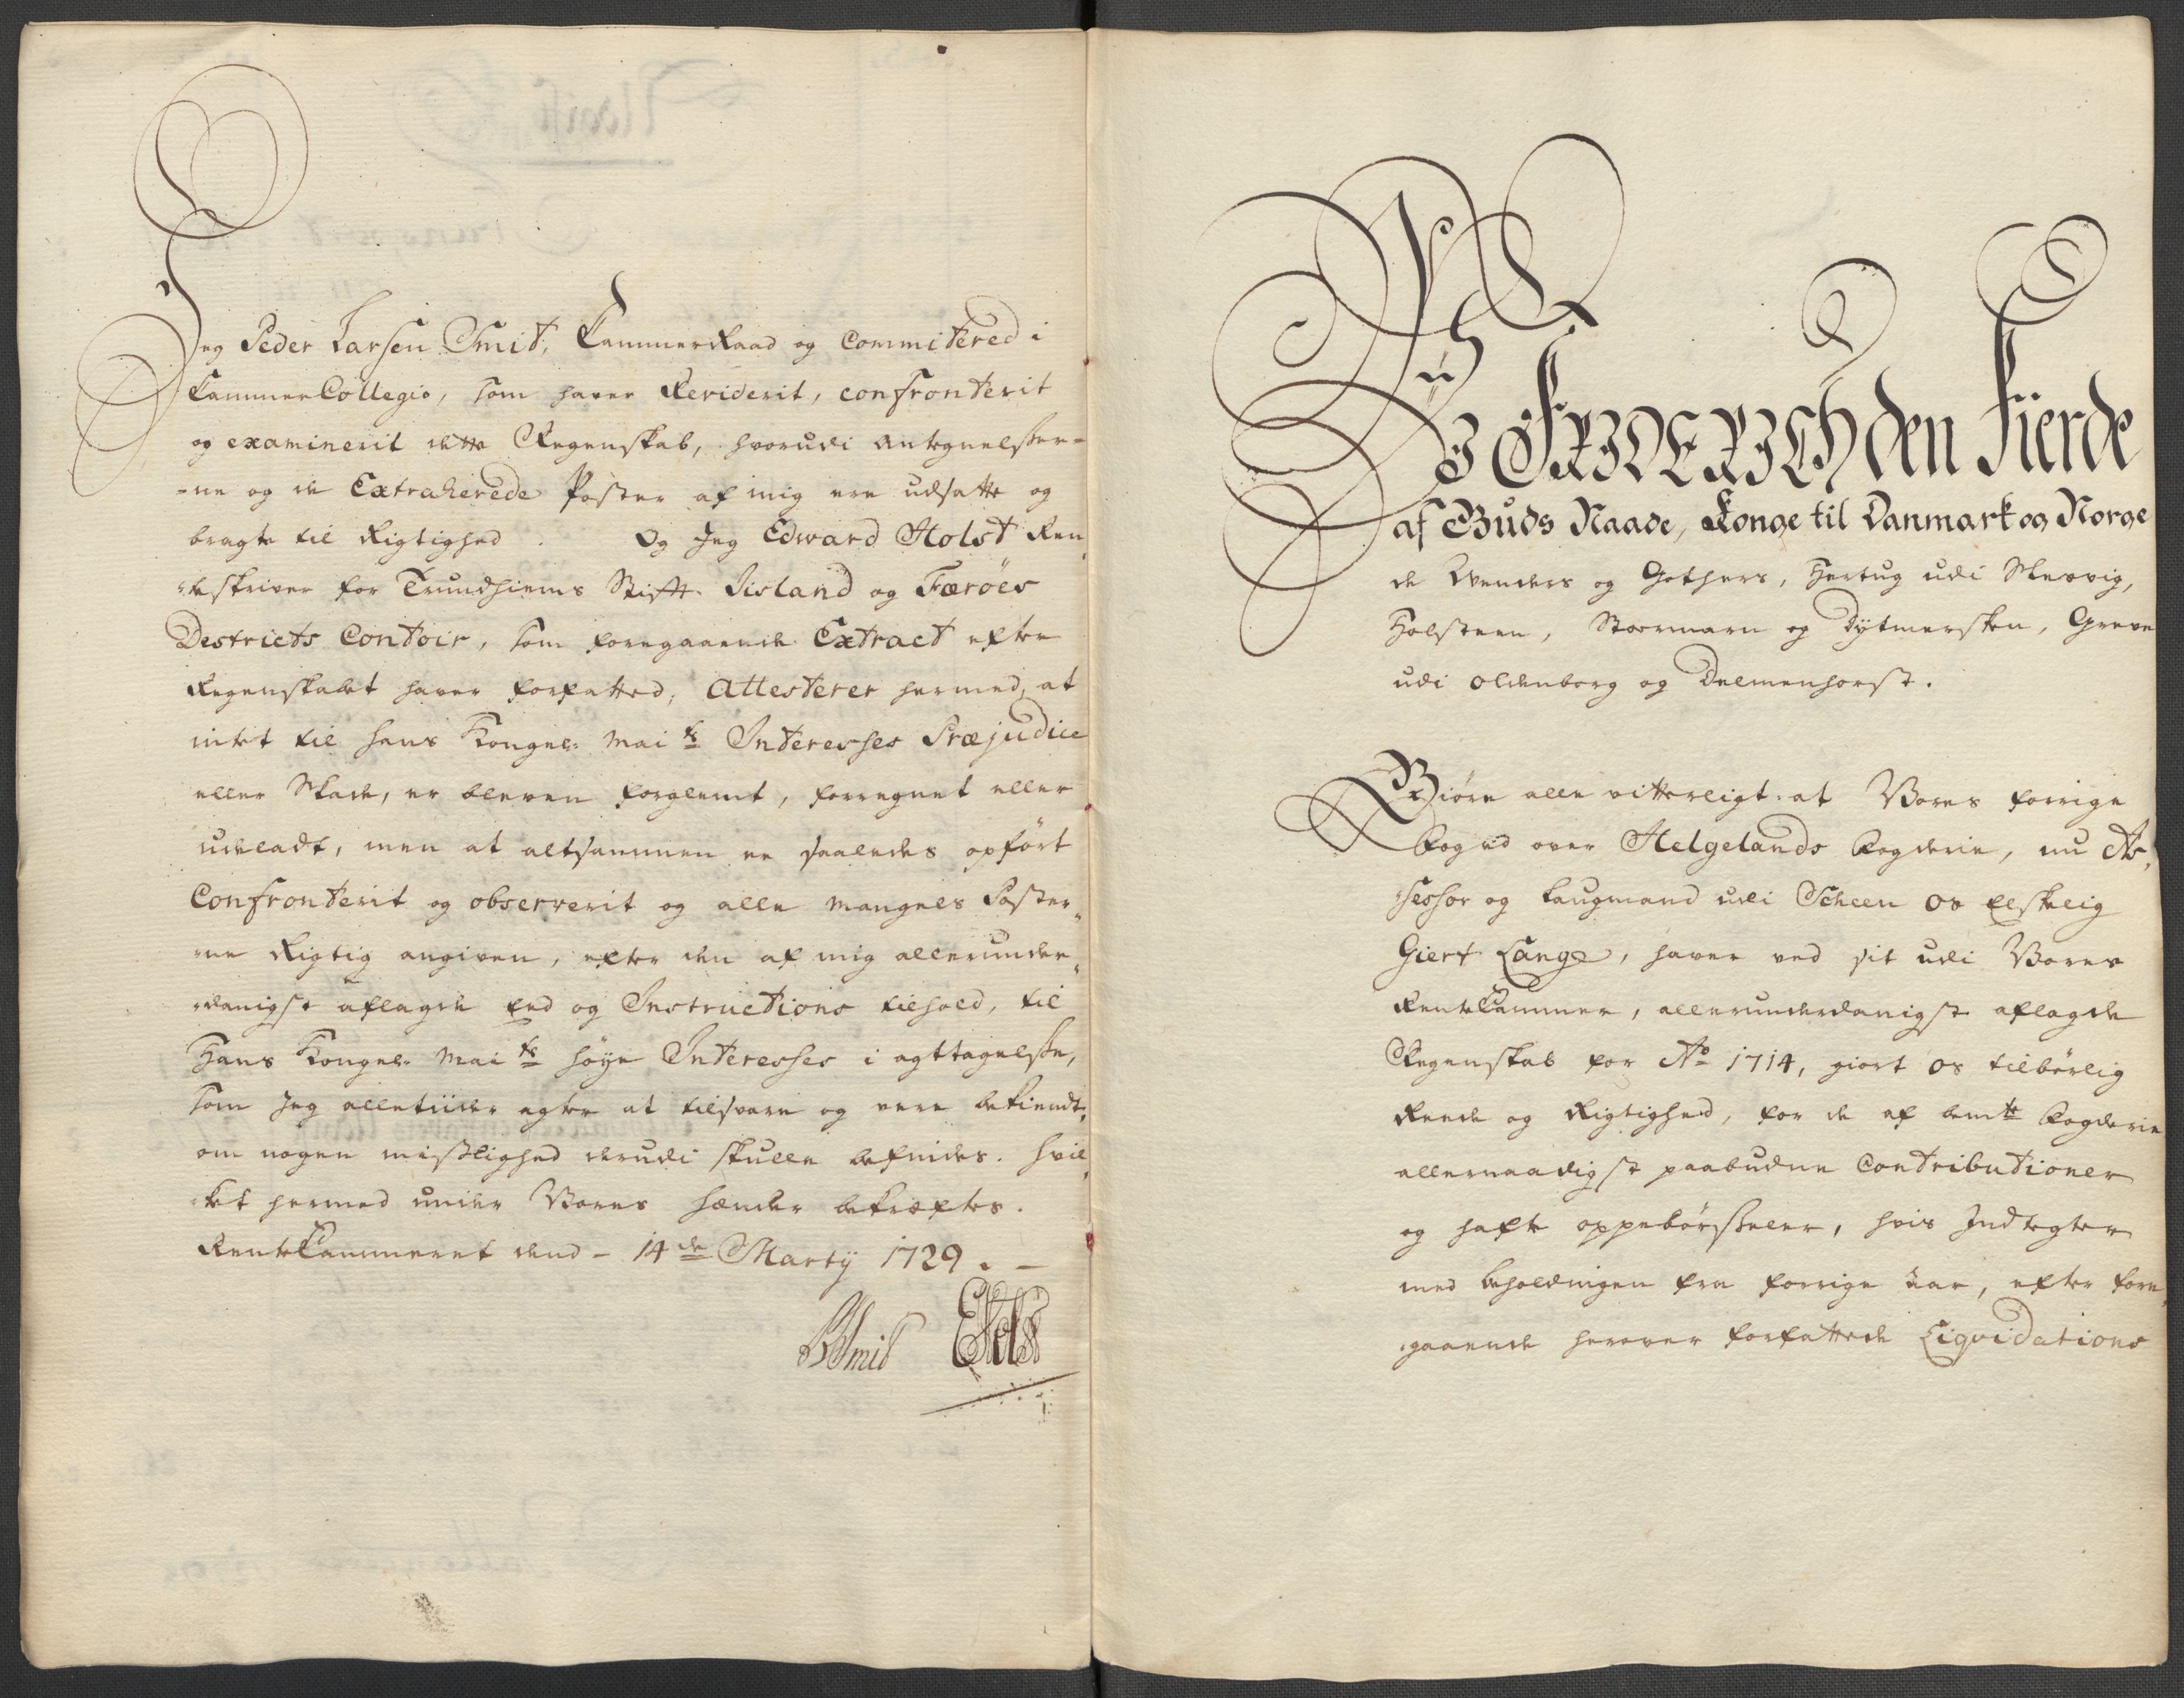 Jeg Peder Larsen Smit, CammerRaad og Committered i
CammerCollegio, som haver Reviderit, confronterit
og examinerit dette Regenskab, hvorudi Antegnelsser-
-ne og de Extraherede Poster af mig ere udsatte og
bragte til Rigtighed. Og Jeg Edward Holst Ren,,
,,teskriver for Trundhiems Stift. Iisland og Færöes
Destricts Contoir, som foregaaende Extract efter
Regenskabet haver forfatted, Attesterer hermed, at
intet til hans Kongel: Mai ts Interesses Præjudice
eller Skade, er bleven forglemt, forregnet eller
udeladt, men at altsammen er saaledes opfört
Confronterit og observerit og alle Mangels Poster,,
,,ne Rigtig angiven, efter den af mig allerunder,,
,,danigst aflagde Eed og Instructions tilhold, til
Hans Kongel: Mai ts höye Interesses i agttagelsse,
som Jeg alletiider agter at tilsvare og være bekiendt,
om nogen misslighed derudi skulle befindes. Hvil,,
,,ket hermed under Vores Hænder bekræftes.
RenteCammeret dend - 14 de Martij 1729. -
PSmit EHolst
VI FRIDERICH den Fierde
af Guds Naade, Konge til Danmark og Norge
de Wenders og Gothers, Hertug udi Slesvig,
Holsteen, Stormarn og Dytmersken, Greve
udi Oldenborg og Delmenhorst.
Giöre alle vitterligt: at Vores forrige
Foged over Helgelands Fogderie, nu As,,
,,sessor og Laugmand udi Scheen os Elskelig
Giert Lange, haver ved sit udi Vores
RenteCammer, allerunderdanigst aflagde
Regenskab for Ao 1714, giort os tilbörlig
Reede og Rigtighed, for de af bemte Fogderie
allernaadigst paabudne Contributioner
og hafte oppebörsseler, hvis Indtegter
med beholdningen fra forrige Aar, efter fore,,
,,gaaende herover forfattede Liqvidations